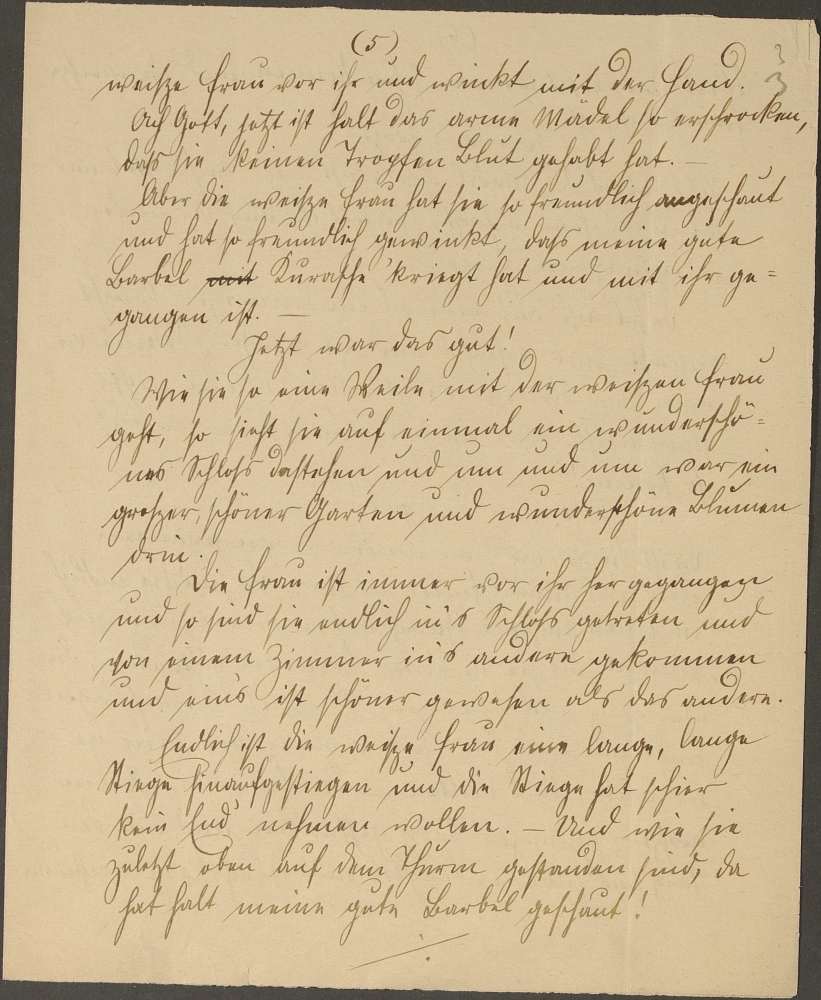 (5)
weisze Frau vor ihr und winkt mit der Hand.
Ach Gott, jetzt ist halt das arme Mädel so erschrocken,
dass sie keinen Tropfen Blut gehabt hat. —
Aber die weisze Frau hat sie so freundlich angeschaut
und hat so freundlich gewinkt, dass meine gute
Barbel mit Kurasche 'kriegt hat und mit ihr ge=
gangen ist. —
Jetzt war das gut!
Wie sie so eine Weile mit der weiszen Frau
geht, so sieht sie auf einmal ein wunderschö=
nes Schloss dastehen und um und um war ein
groszer, schöner Garten und wunderschöne Blumen
drin.
Die Frau ist immer vor ihr hergegangen
und so sind sie endlich in's Schloss getreten und
von einem Zimmer in's andere gekommen
und ein's ist schöner gewesen als das andere.
Endlich ist die weisze Frau eine lange, lange
Stiege hinaufgestiegen und die Stiege hat schier
kein End' nehmen wollen. — Und wie sie
zuletzt oben auf dem Thurm gestanden sind, da
hat halt meine gute Barbel geschaut!